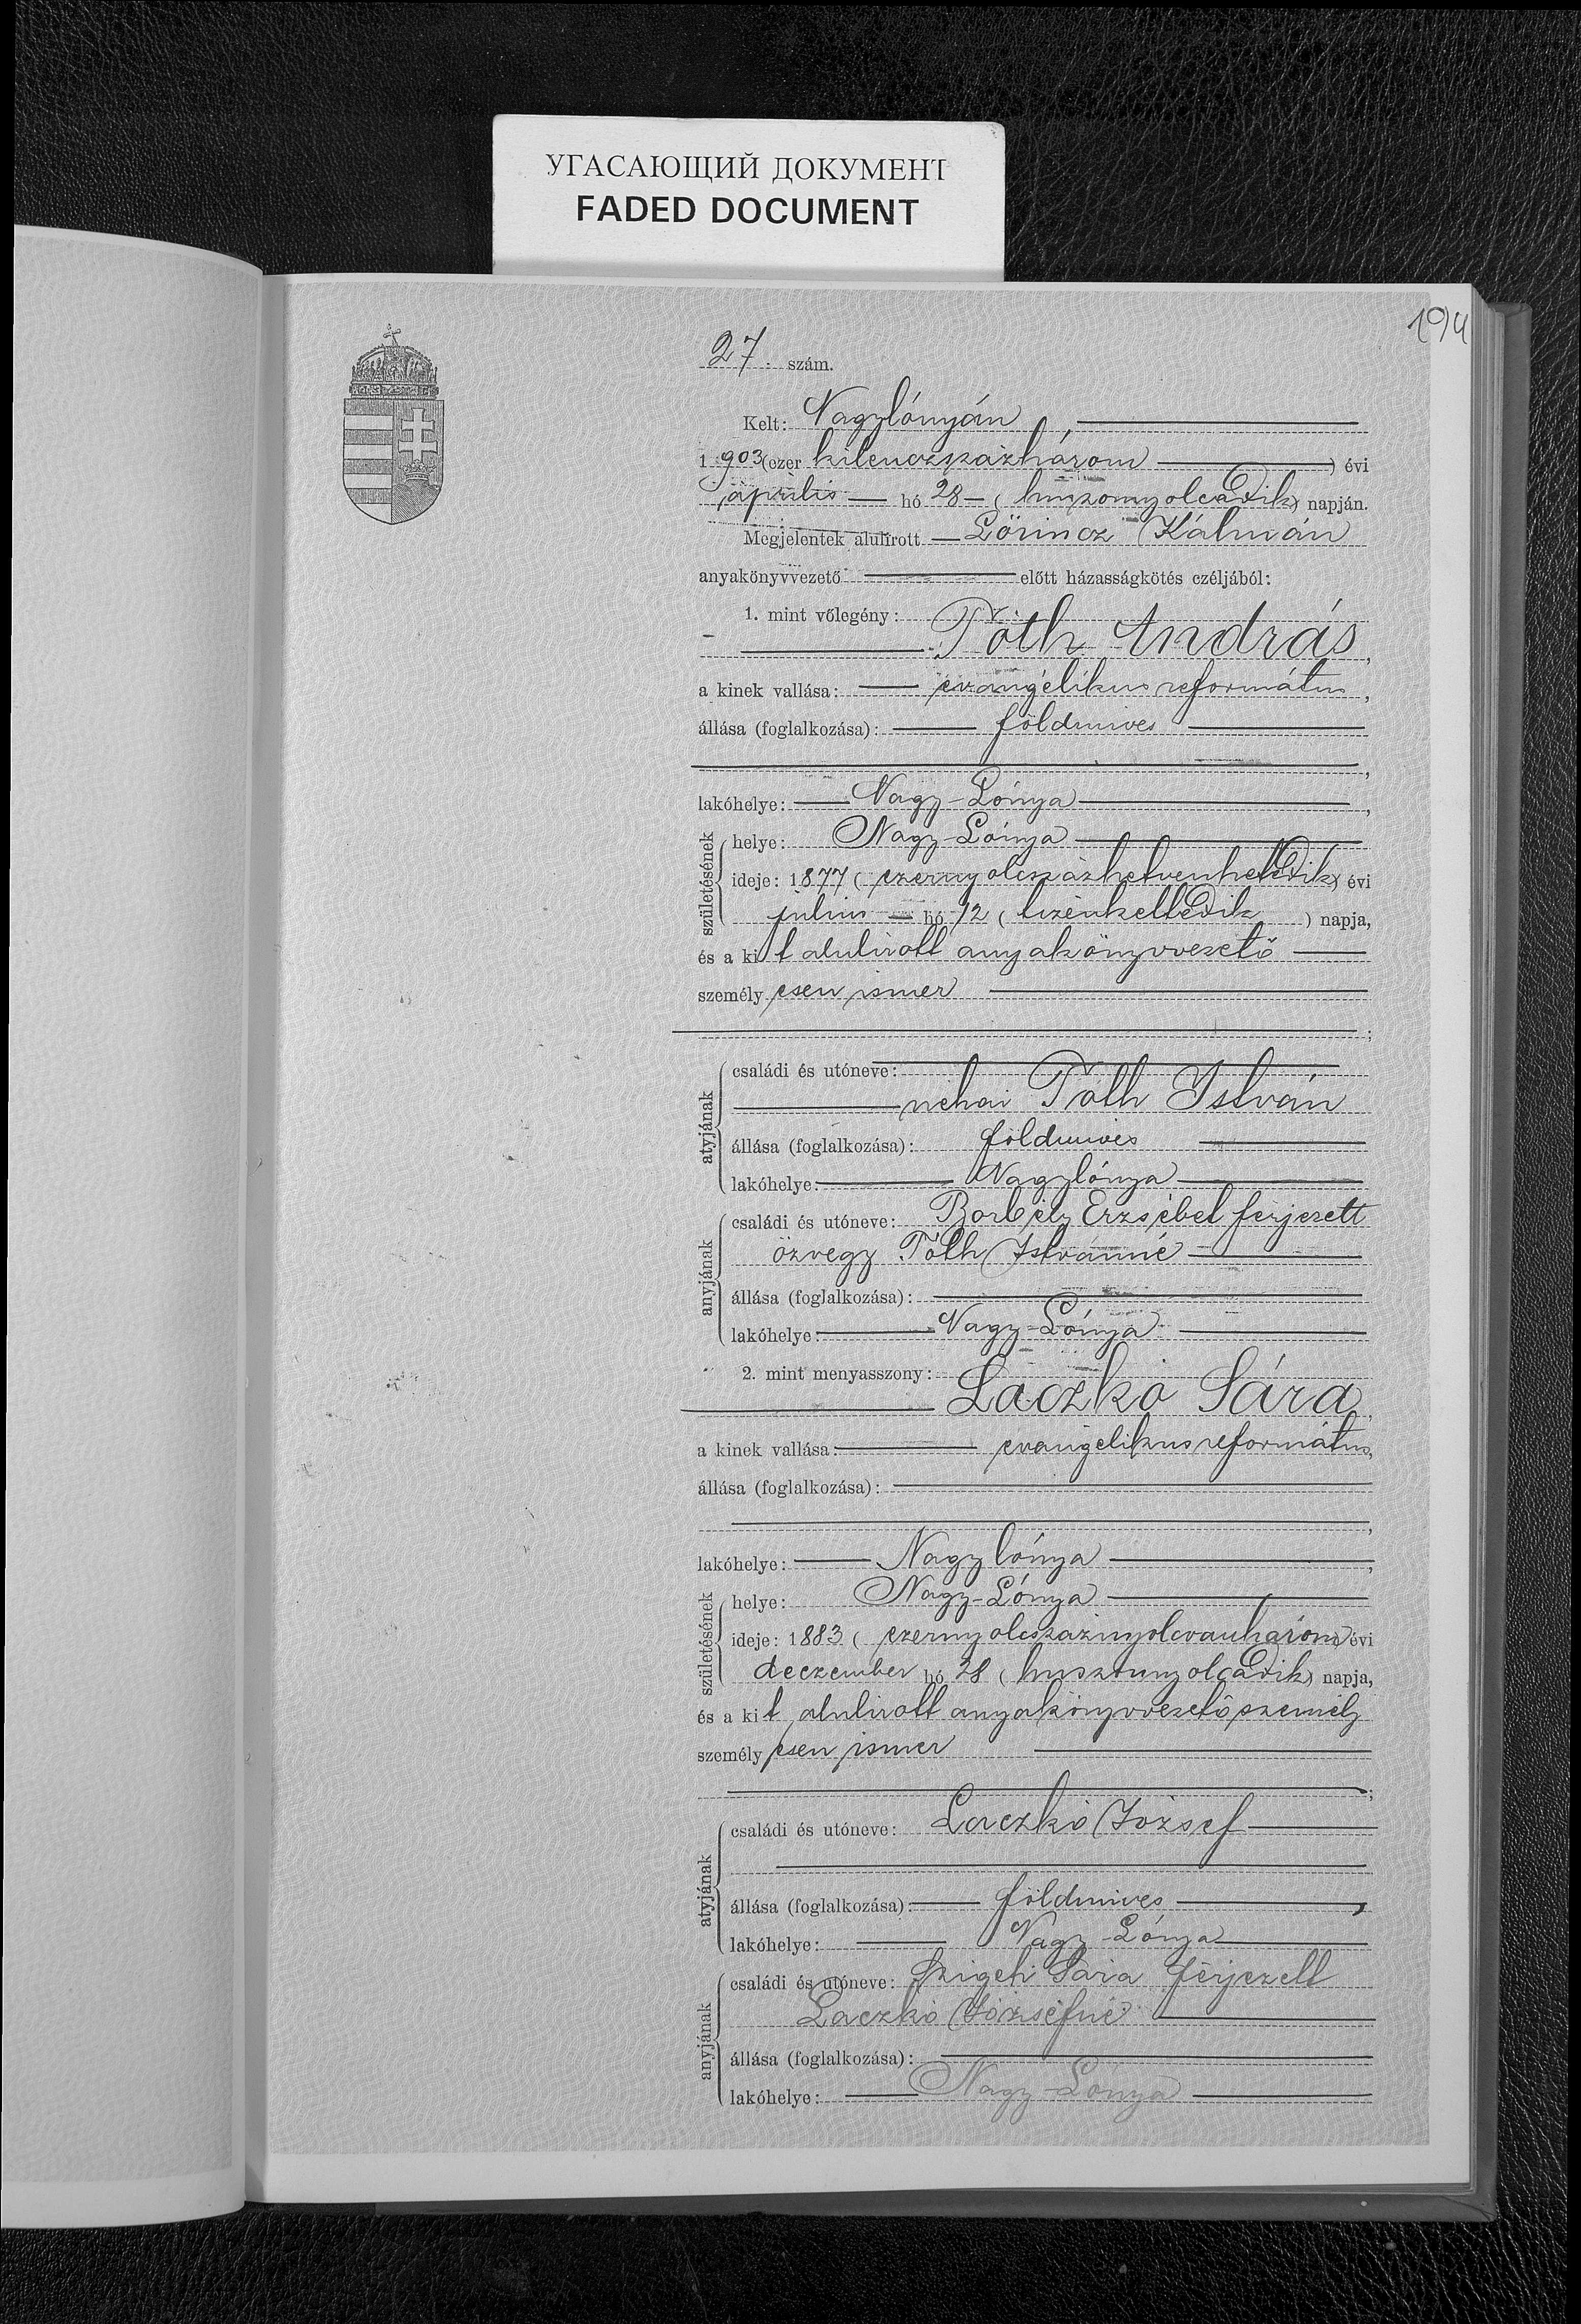 УГАСАЮЩИЙ ДОКУМЕНТ
FADED DOCUMENT
194
27 szám.
Kelt: Nagylónyán,
1903 (ezer kilenczszázhárom) évi
április hó 28 (huszonnyolcadik) napján.
Megjelentek alulírott Lőrincz Kálmán
anyakönyvvezető előtt házasságkötés czéljából:
1. mint vőlegény:
Tóth András,
a kinek vallása: evangélikus református,
állása (foglalkozása): földmives
,
lakóhelye: Nagy-Lónya,
születésének
helye: Nagy-Lónya
ideje: 1877 (ezernyolcszázhetvenhetedik) évi
julius hó 12 (tizenkettedik) napja,
és a kit alulirott anyakönyvvezető
személyesen ismer
;
atyjának
családi és utóneve:
néhai Tóth István
állása (foglalkozása): földmives
lakóhelye: Nagylónya
anyjának
családi és utóneve: Borbély Erzsébet férjezett
özvegy Tóth Istvánné
állása (foglalkozása):
lakóhelye: Nagy-Lónya
2. mint menyasszony:
Laczkó Sára,
a kinek vallása: evangelikus református,
állása (foglalkozása):
,
lakóhelye: Nagylónya,
születésének
helye: Nagy-Lónya
ideje: 1883 (ezernyolcszáznyolcvanhárom) évi
deczember hó 28 (huszonnyolcadik) napja,
és a kit alulirott anyakönyvvezető személy
személyesen ismer
;
atyjának
családi és utóneve: Laczkó József
állása (foglalkozása): földmives,
lakóhelye: Nagy-Lónya
anyjának
családi és utóneve: Szigeti Sára férjezett
Laczkó Józsefné
állása (foglalkozása):
lakóhelye: Nagy-Lónya